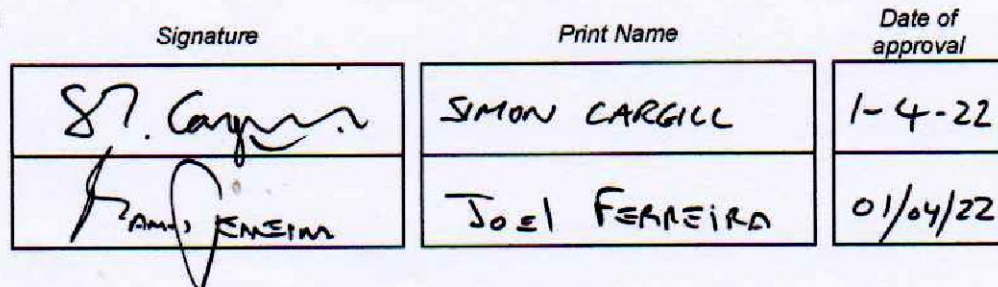 Signature Print Name Date of approval
SIMON CARGILL 1-4-22
Joel FERREIRA 01/04/22